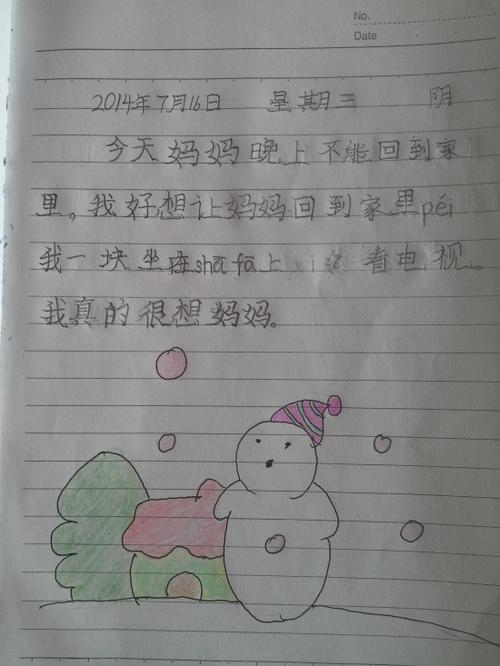 No.
Date
2014年7月16日 星期三 阴
今天妈妈晚上不能回到家
里。我好想让妈妈回到家里péi
我一块坐在shā fā上 看电视。
我真的很想妈妈。